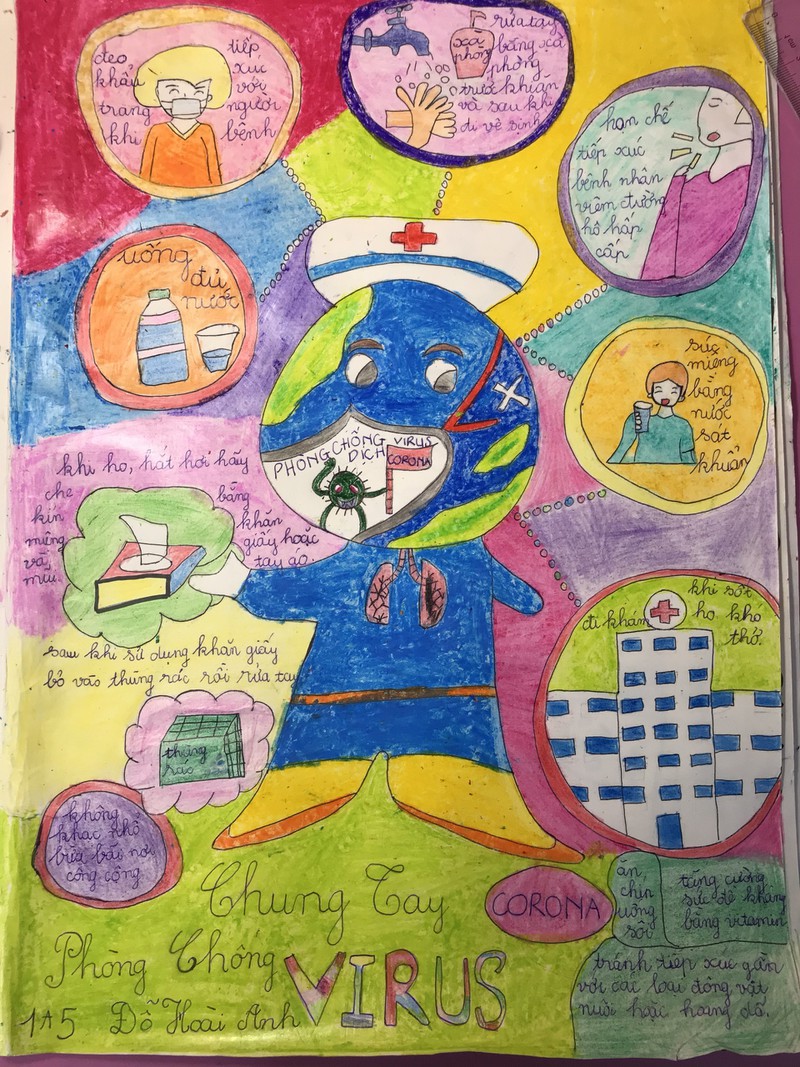 đeo
khẩu
trang
khi
tiếp
xúc
với
người
bệnh
rửa tay
bằng xà
phòng
trước khi ăn
và sau khi
đi vệ sinh
xà
phòng
hạn chế
tiếp xúc
bệnh nhân
viêm đường
hô hấp
cấp
uống
đủ
nước
súc
miệng
bằng
nước
sát
khuẩn
PHÒNG CHỐNG
DỊCH
VIRUS
CORONA
khi ho, hắt hơi hãy
che
kín
miệng
và
mũi.
bằng
khăn
giấy hoặc
tay áo
sau khi sử dụng khăn giấy
bỏ vào thùng rác rồi rửa tay
thùng
rác
không
khạc nhổ
bừa bãi nơi
công cộng
đi khám
khi sốt
ho, khó
thở.
Chung Tay
Phòng Chống
CORONA
VIRUS
1A5 Đỗ Hoài Anh
ăn
chín
uống
sôi
tăng cường
sức đề kháng
bằng vitamin
tránh tiếp xúc gần
với các loại động vật
nuôi hoặc hoang dã.